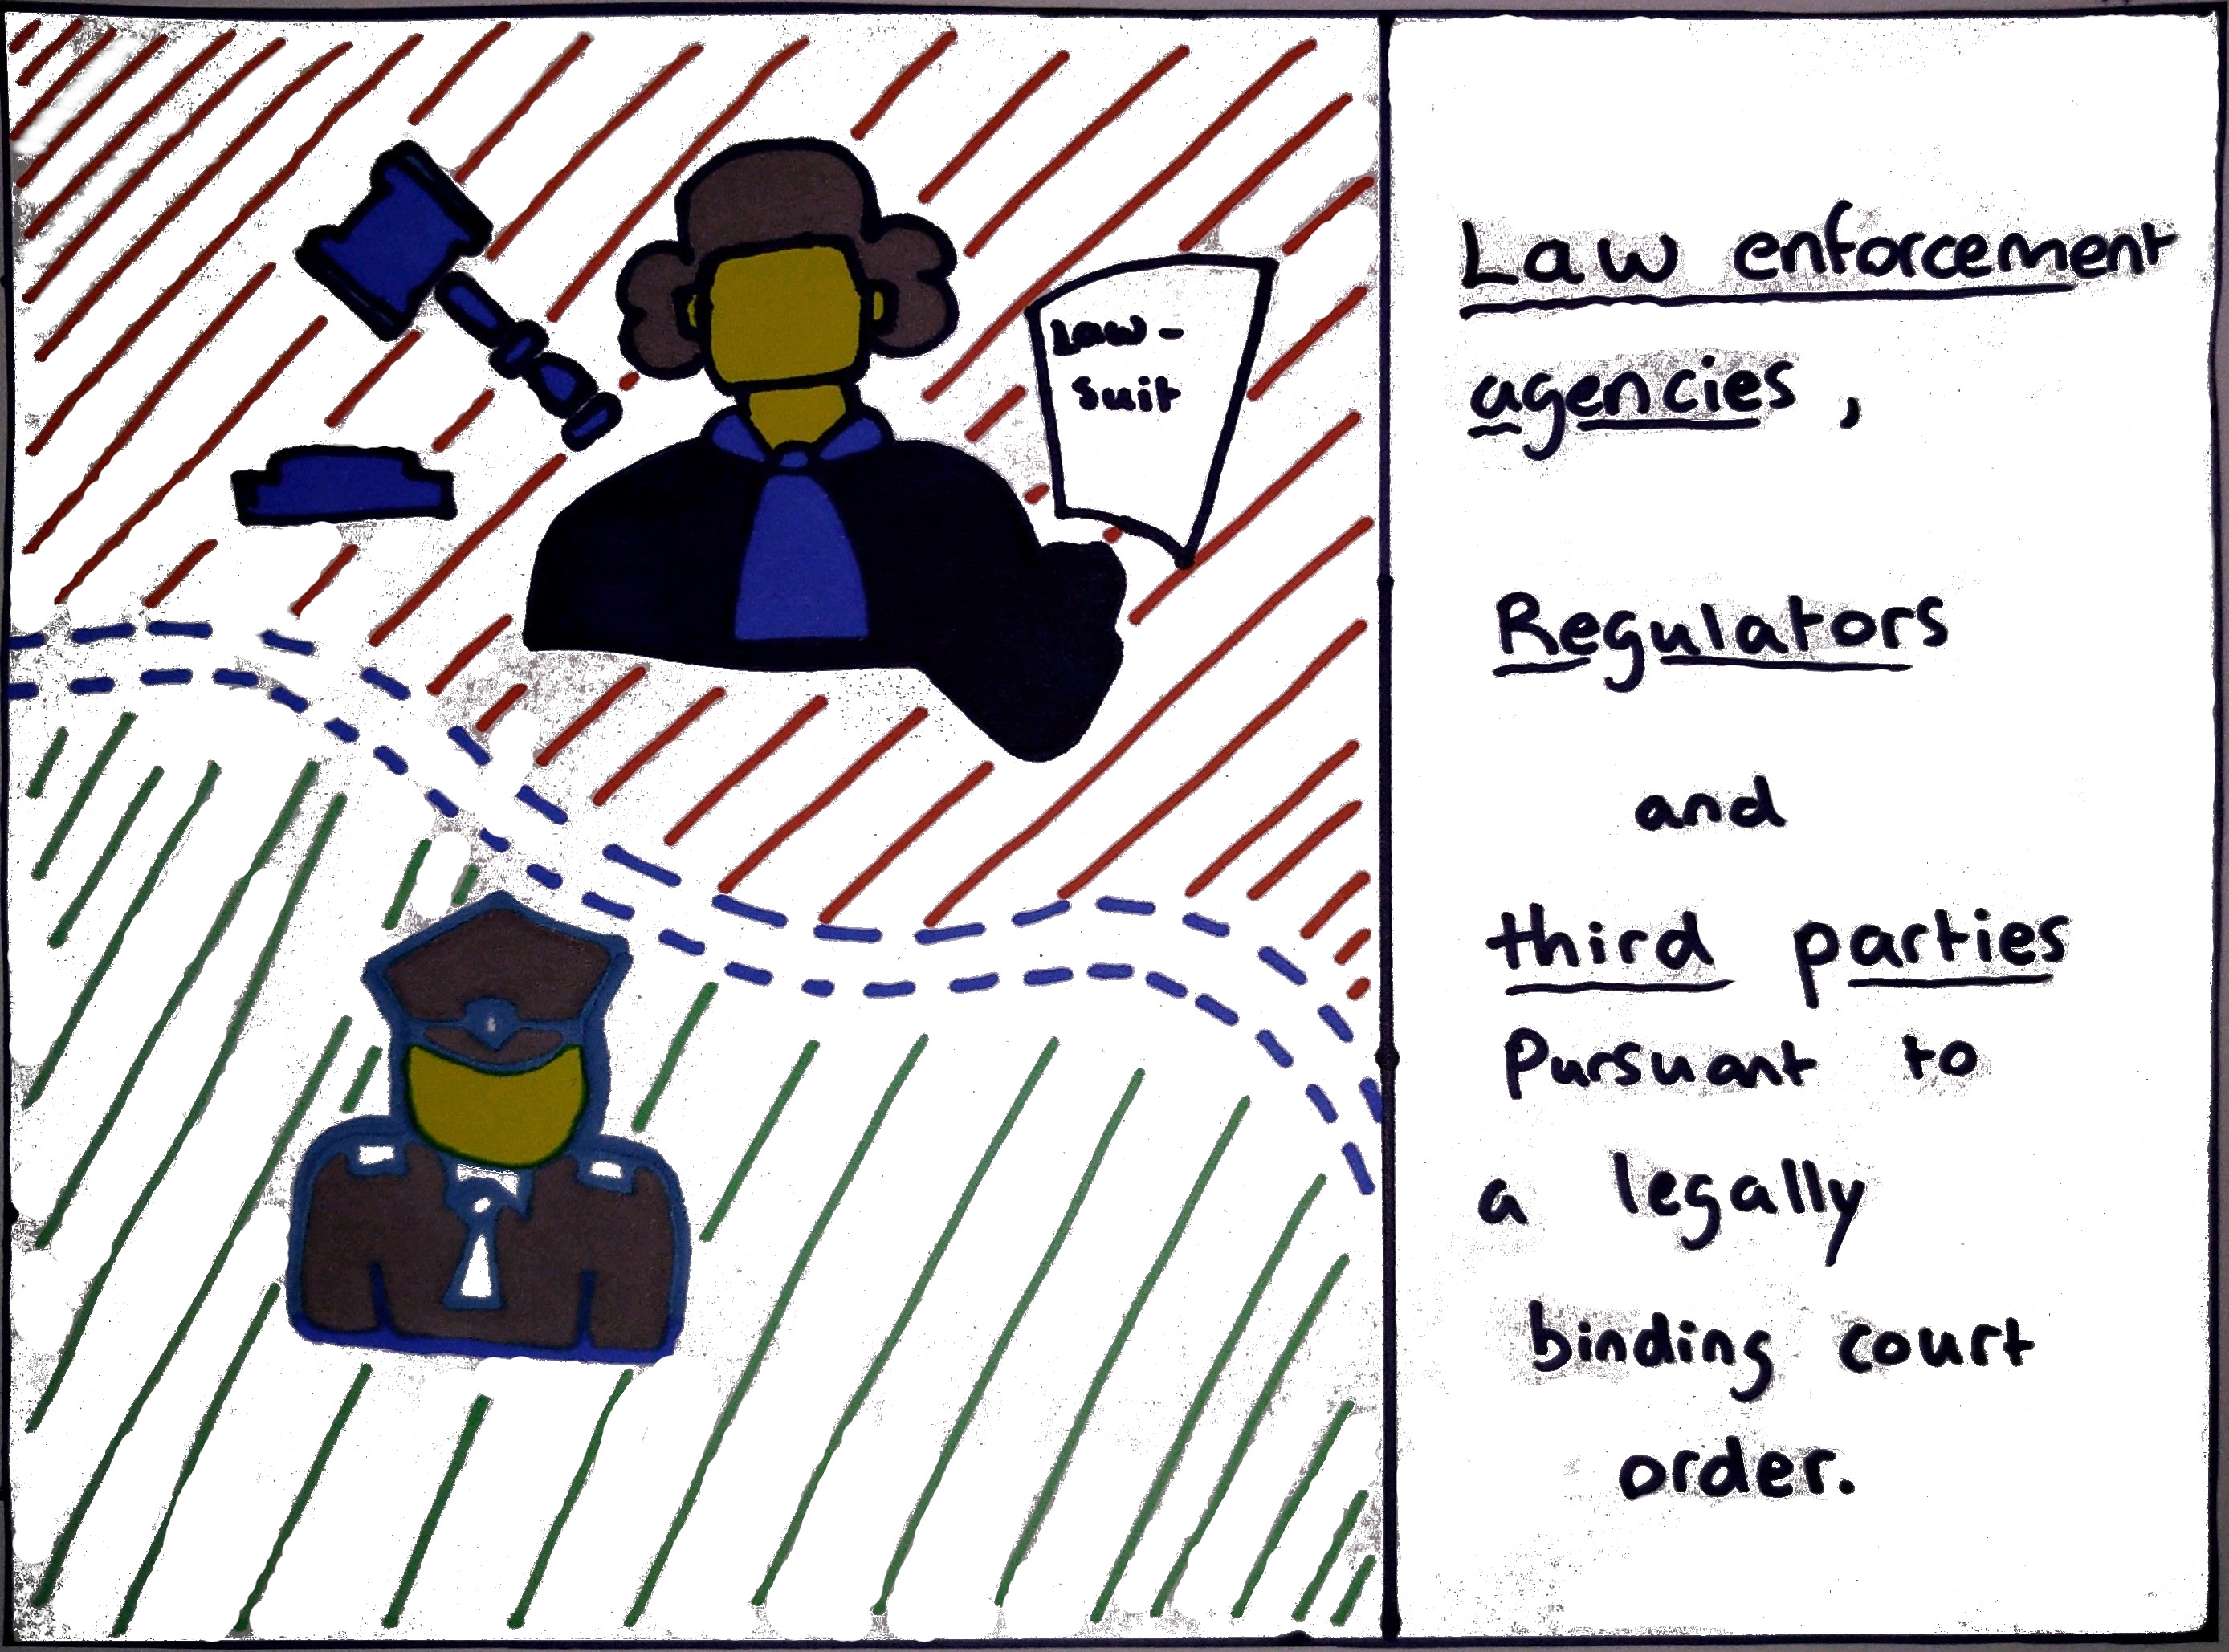 Law-
Suit
Law enforcement
agencies,
Regulators
and
third parties
Pursuant to
a legally
binding court
order.